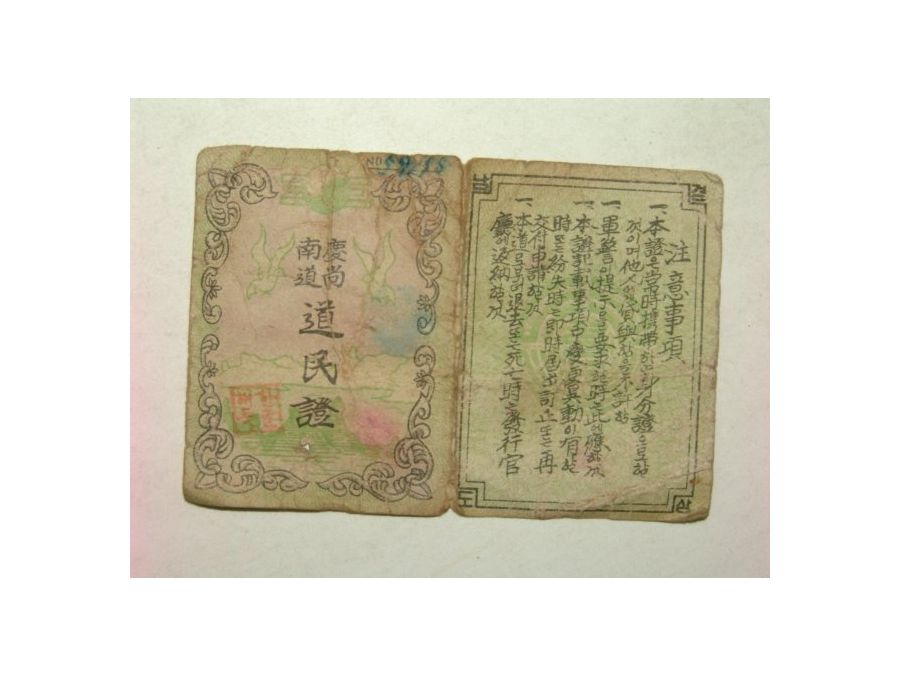 慶尚
南道
道民證
注意事項
一、本證은常時携帶하고身分證으로할
것이며他人에게貸與함을不許함
一、軍警이提示를要求할時는此에應할것
一、本證記載事項中變更異動이有할
時또는紛失時는即時届出訂正또는再
交付申請할것
一、本道로부터退去또는死亡時는發行官
廳에返納할것
경
상
남
도